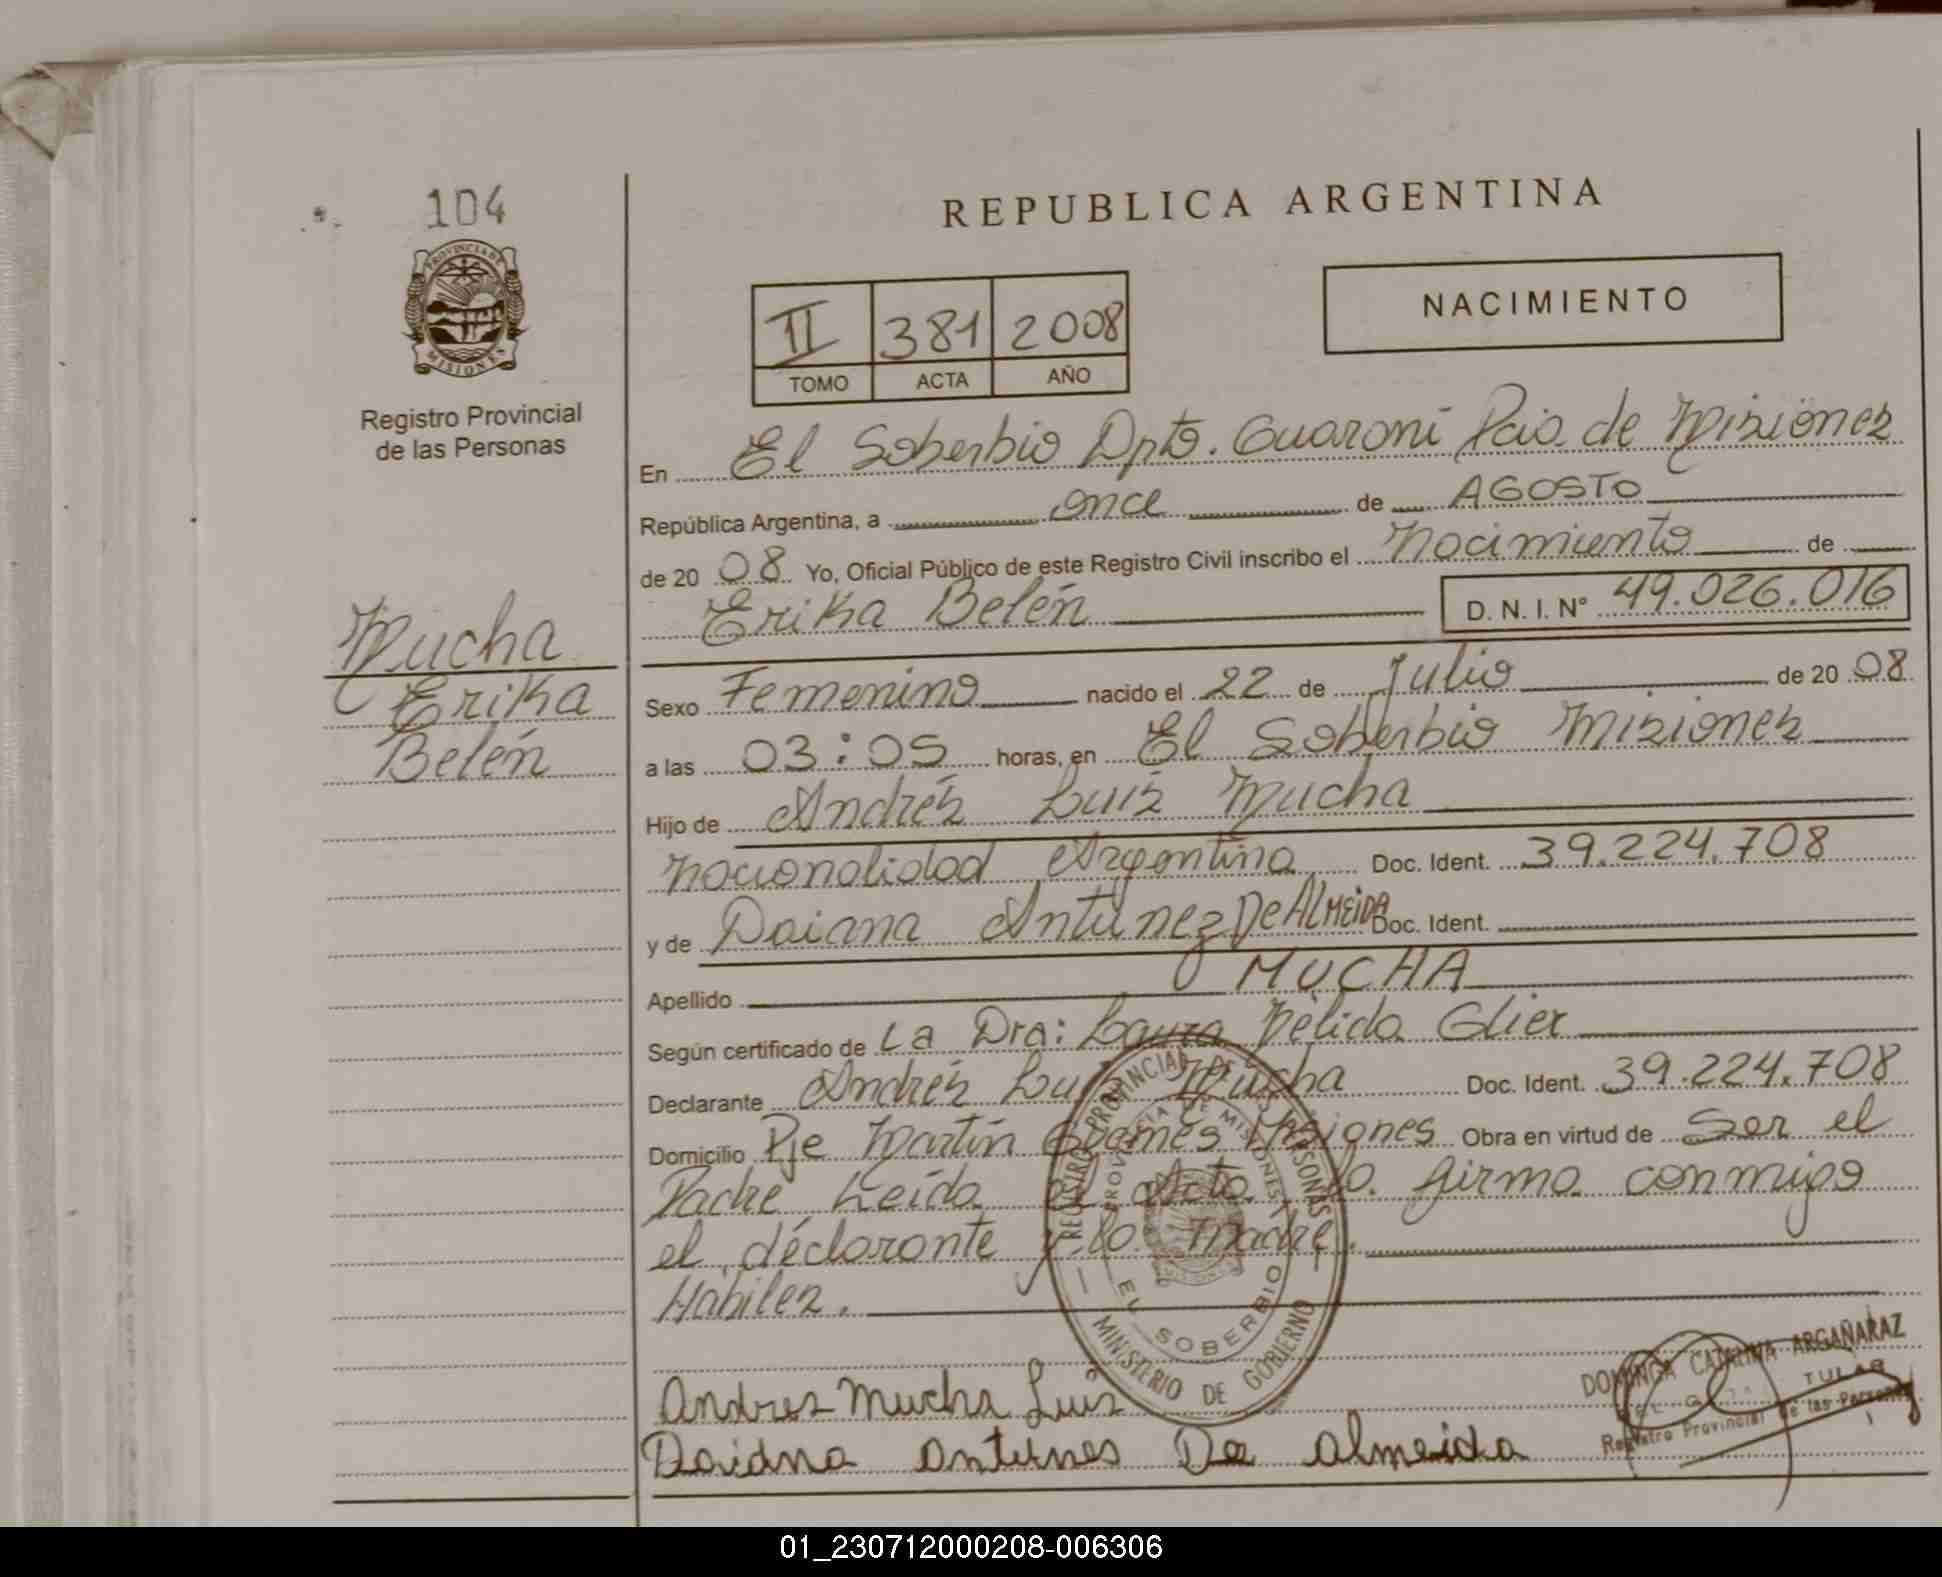 104
PROVINCIA DE
MISIONES
Registro Provincial
de las Personas
REPUBLICA ARGENTINA
NACIMIENTO
II 381 2008
TOMO ACTA AÑO
En El Soberbio Dpto. Guaraní Pcia. de Misiones
República Argentina, a once de AGOSTO
de 20 08 Yo, Oficial Público de este Registro Civil inscribo el Nacimiento de
Erika Belén D. N. I. Nº 49.026.016
Mucha
Erika
Belén
Sexo Femenino nacido el 22 de Julio de 20 08
a las 03:05 horas, en El Soberbio Misiones
Hijo de Andrés Luis Mucha
nacionalidad Argentina Doc. Ident. 39.224.708
y de Daiana Antunez De ALMEIDA Doc. Ident.
Apellido MUCHA
Según certificado de La Dra: Laura Nélida Glier
Declarante Andrés Luis Mucha Doc. Ident. 39.224.708
Domicilio Pje Martín Güemes Misiones Obra en virtud de Ser el
Padre Leída el Acta la firma conmigo
el declarante y la madre.
Hábiles.
REGISTRO PROVINCIAL DE LAS PERSONAS
PROVINCIA DE MISIONES
EL SOBERBIO
MINISTERIO DE GOBIERNO
Andres Mucha Luis
Daiana Antunes De Almeida
DOMINGA CATALINA ARGAÑARAZ
TULAR
Registro Provincial de las Personas
01_230712000208-006306